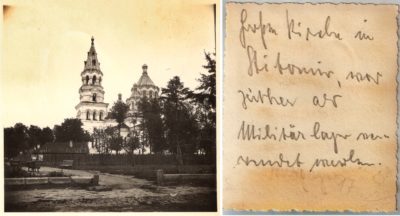 Große Kirche in
Shitomir, war
früher als
Militärlager ver-
wendet worden.